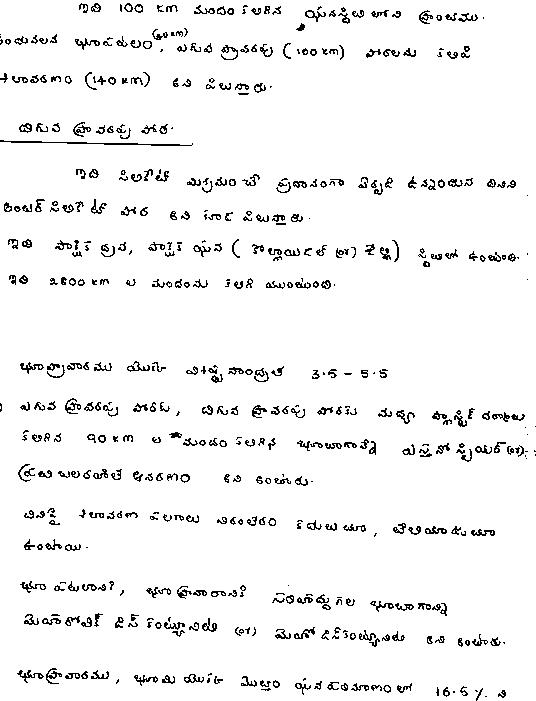 ఇది 100 km మందం కలిగిన ఘనస్థితి లోని ప్రాంతము.
భూపటలం (60 km), ఎగువ ప్రావరపు (100 km) పొరలను కలిపి
శిలావరణం (140 km) అని పిలుస్తారు.
దిగువ ప్రావరపు పొర.
ఇది సిలికేట్ మిశ్రమం చే ప్రధానంగా ఏర్పడి ఉన్నందున దీనిని
ఇంటర్ సిలికేట్ పొర అని కూడ పిలుస్తారు.
ఇది పాక్షిక ద్రవ, పాక్షిక ఘన ( కొల్లాయిడల్ (or) జెల్లి) స్థితిలో ఉంటుంది.
ఇది 2800 km ల మందంను కలిగి యుంటుంది.
భూప్రావారము యొక్క విశిష్ట సాంద్రత 3.5 - 5.5
ఎగువ ప్రావరపు పొరకు, దిగువ ప్రావరపు పొరకు మధ్య ప్లాస్టిక్ ధర్మాలు
కలిగిన 90 km ల మందం కలిగిన భూభాగాన్ని ఎస్తినోస్పియర్ (or)
దుర్బలావరణం అని అంటారు.
దీనిపై శిలావరణ పలకాలు నిరంతరం కదులుచూ, తేలియాడుచూ
ఉంటాయి.
భూ పటలానికి, భూ ప్రావారానికి సరిహద్దుగల భూభాగాన్ని
మొహోరోవిక్ డిస్ కంట్యూనిటి (or) మొహో డిస్ కంట్యూనిటి అని అంటారు.
భూప్రావారము, భూమి యొక్క మొత్తం ఘన పరిమాణంలో 16.5 %. ని